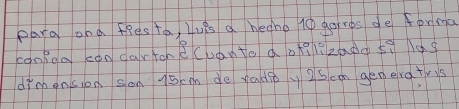 para una fiesta, Luis a hecho 10 gorros de forma
coniga con carton ¿Cuanto a otilizado si las
dimension son 15cm de radio y 25cm generatris